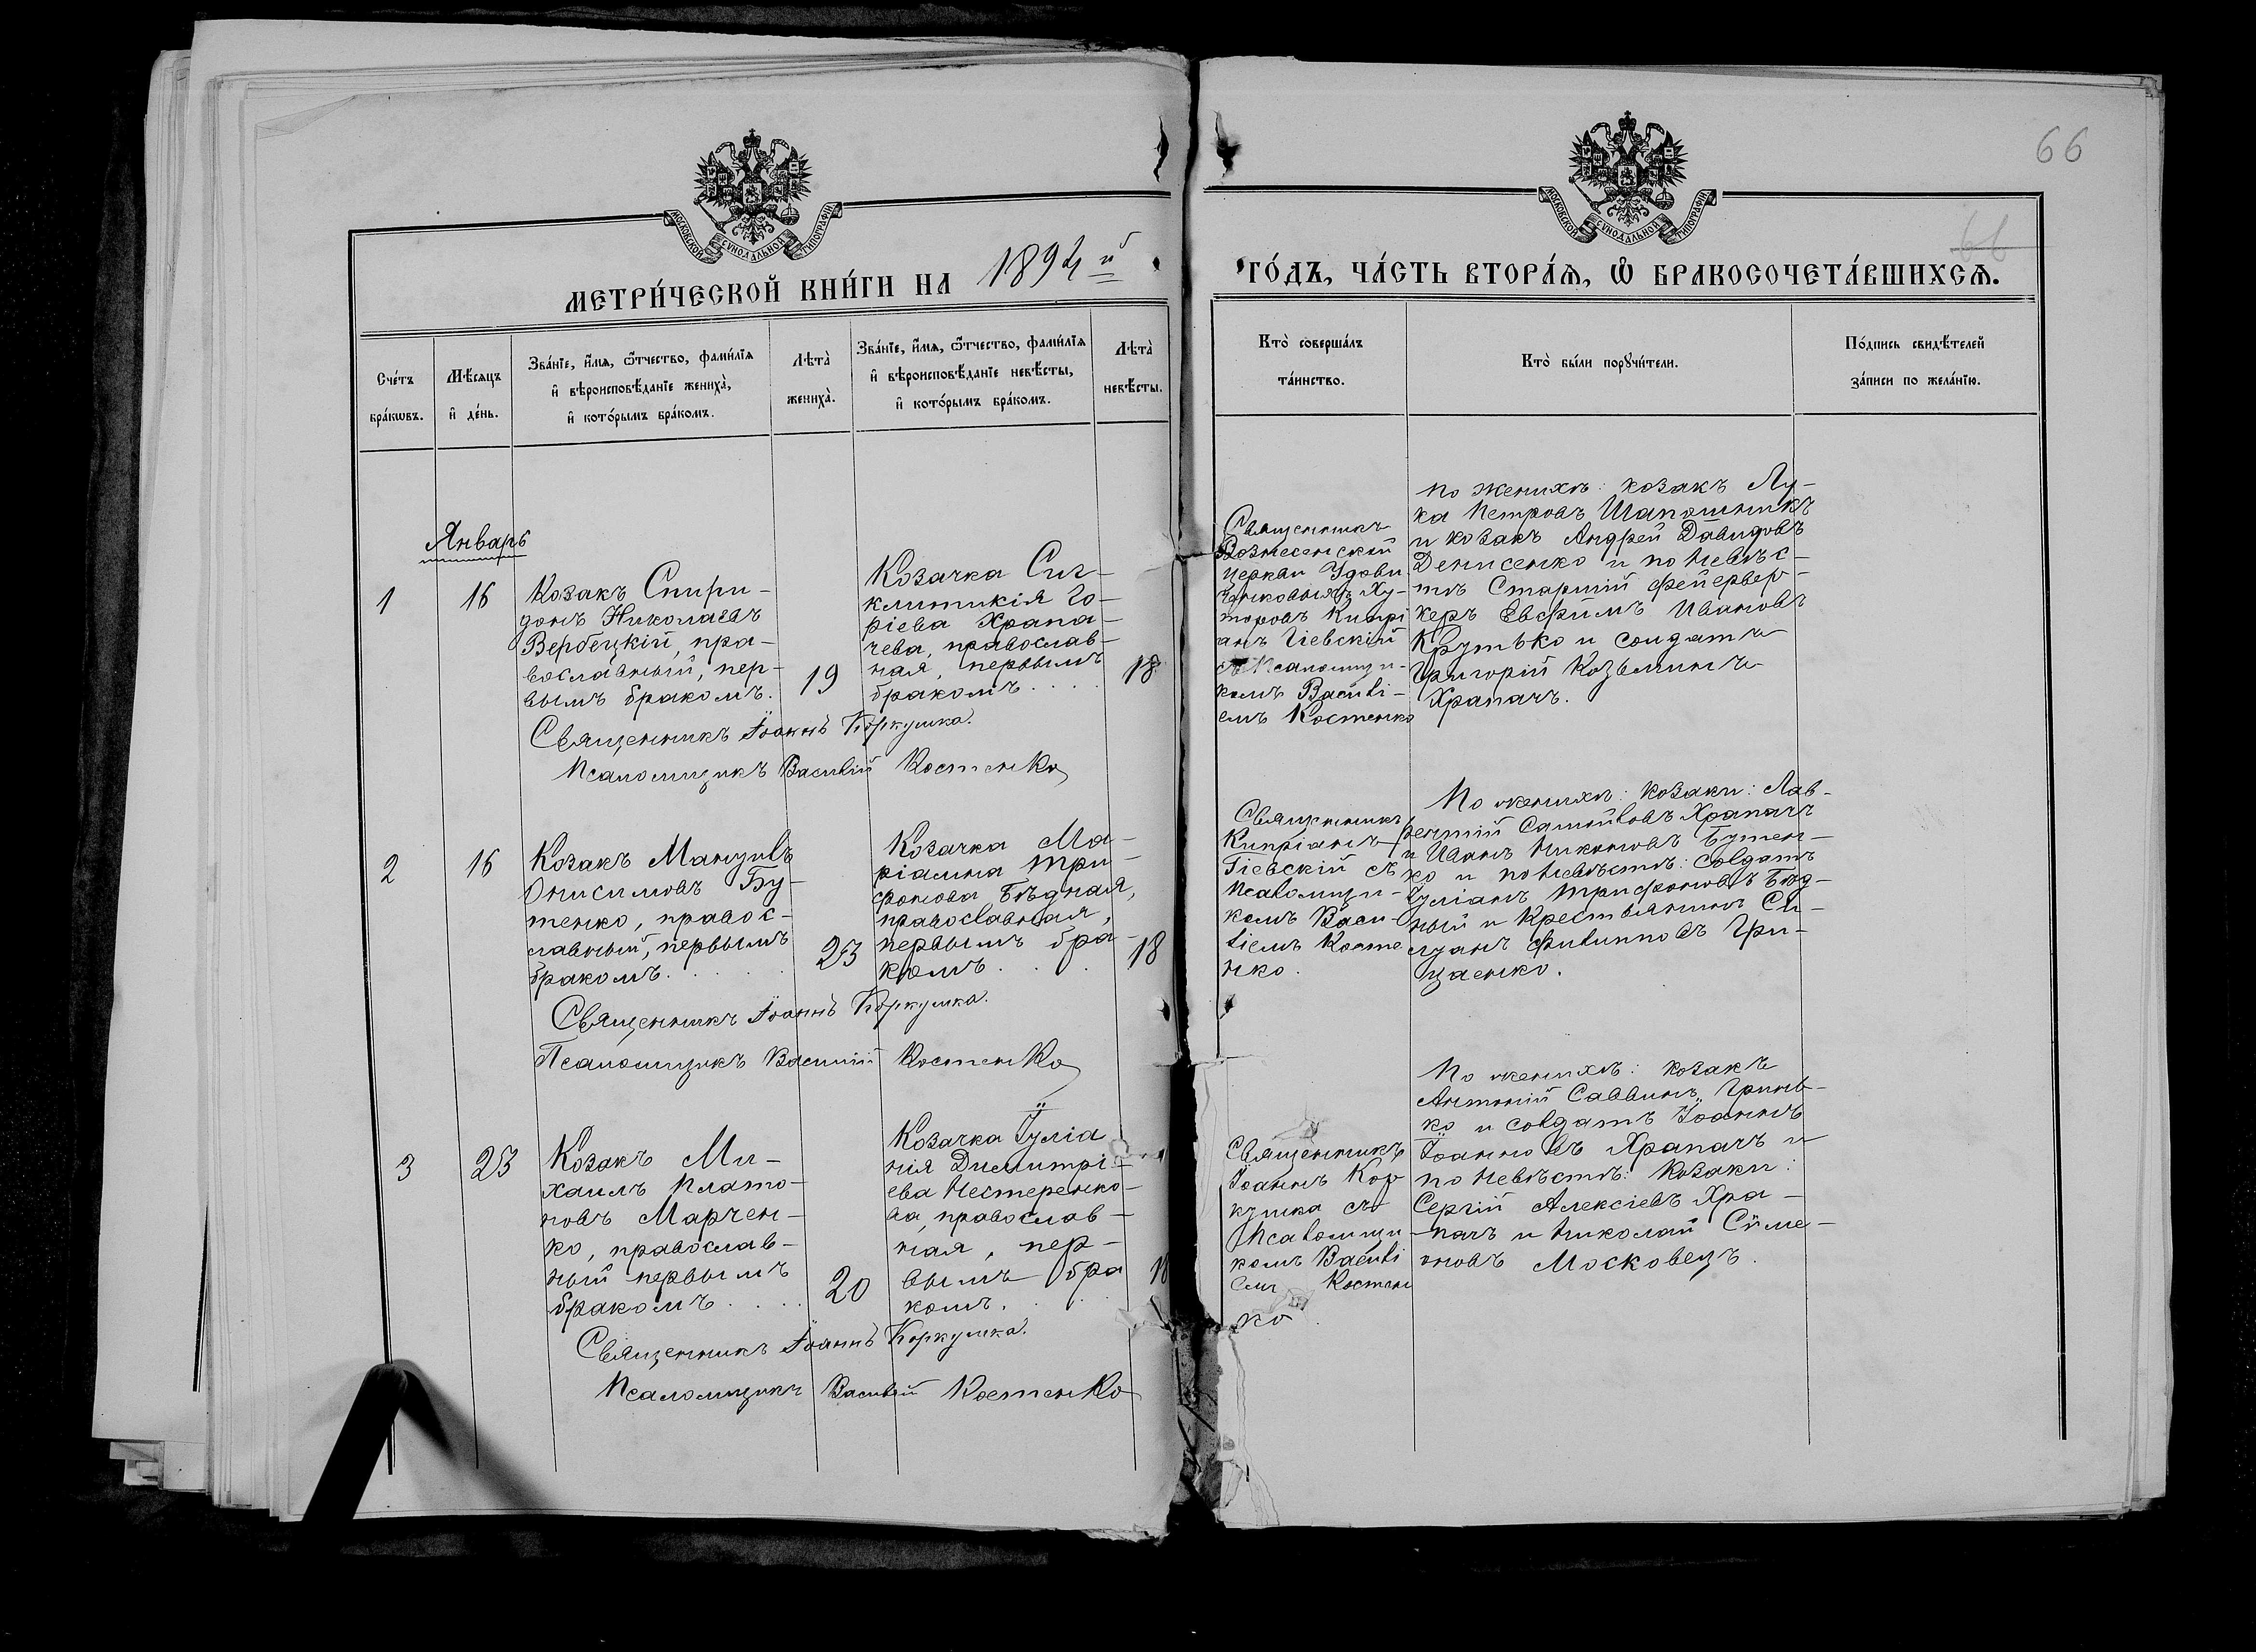 66
66
МОСКОВСКОЙ СѴНОДАЛЬНОЙ ТИПОГРАФІИ
МОСКОВСКОЙ СѴНОДАЛЬНОЙ ТИПОГРАФІИ
МЕТРИ́ЧЕСКОЙ КНИ́ГИ НА 1894й
ГО́ДЪ, ЧА́СТЬ ВТОРА́Ѧ, Ѡ҆ БРАКОСОЧЕТА́ВШИХСѦ.
Сче́тъ
бра́кѡвъ.
Мѣ́сѧцъ
и҆ де́нь.
Зва́нїе, и҆́мѧ, ѻ҆́тчество, фами́лїѧ
и҆ вѣроисповѣ́данїе жениха̀,
и҆ кото́рымъ бра́комъ.
Лѣта̀
жениха̀.
Зва́нїе, и҆́мѧ, ѻ҆́тчество, фами́лїѧ
и҆ вѣроисповѣ́данїе невѣ́сты,
и҆ кото́рымъ бра́комъ.
Лѣта̀
невѣ́сты.
Кто̀ соверша́лъ
та́инство.
Кто̀ бы́ли порꙋчи́тели.
По́дпись свидѣ́телей
за́писи по жела́нїю.
Январь
1
16
Козакъ Спири-
донъ Николаевъ
Вербецкій, пра-
вославный, пер-
вымъ бракомъ.
19
Козачка Сиг-
клитикія Го-
ріева Храпа-
чева, православ-
ная, первымъ
бракомъ....
18
Священникъ
Вознесенской
церкви Удови
ченковыхъ Ху-
торовъ Кипрі
анъ Гіевскій
съ Псаломщи-
комъ Василі-
емъ Костенко
по женихѣ: козакъ Лу-
ка Петровъ Шапошникъ
и козакъ Андрей Давидовъ
Денисенко и по невѣс-
тѣ Старшій фейервер-
керъ Евфимъ Ивановъ
Крутько и солдатъ
Григорій Козьминъ
Храпачъ.
Священникъ Іоаннъ Коркушка.
Псаломщикъ Василій Костенко
2
16
Козакъ Мануилъ
Онисимовъ Бу-
тенко, правос-
лавный, первымъ
бракомъ.....
23
Козачка Ма-
ріамна Три-
фонова Бѣдная,
православная,
первымъ бра-
комъ....
18
Священникъ
Кипріанъ
Гіевскій съ
Псаломщи-
комъ Васи-
ліемъ Косте
нко.
По женихѣ: козаки: Лав-
рентій Самойловъ Храпачъ
и Иванъ Никоновъ Бутен-
ко и по невѣстѣ: солдатъ
Іуліанъ Трифоновъ Бѣд-
ный и крестьянинъ Си-
луанъ Филипповъ Гри-
щенко.
Священникъ Іоаннъ Коркушка.
Псаломщикъ Василій Костенко
3
23
Козакъ Ми-
хаилъ Плато-
новъ Марчен-
ко, православ-
ный первымъ
бракомъ....
20
Козачка Іуліа
нія Димитрі-
ева Нестеренко-
ва, православ-
ная, пер-
вымъ бра
комъ...
18
Священникъ
Іоаннъ Кор
кушка съ
Псаломщи
комъ Василі
емъ Костен
ко.
По женихѣ: козакъ
Антоній Саввинъ Гринь-
ко и солдатъ Іоаннъ
Іоанновъ Храпачъ и
по невѣстѣ: козаки:
Сергій Алексіевъ Хра-
пачъ и Николай Симе-
оновъ Московецъ.
Священникъ Іоаннъ Коркушка.
Псаломщикъ Василій Костенко